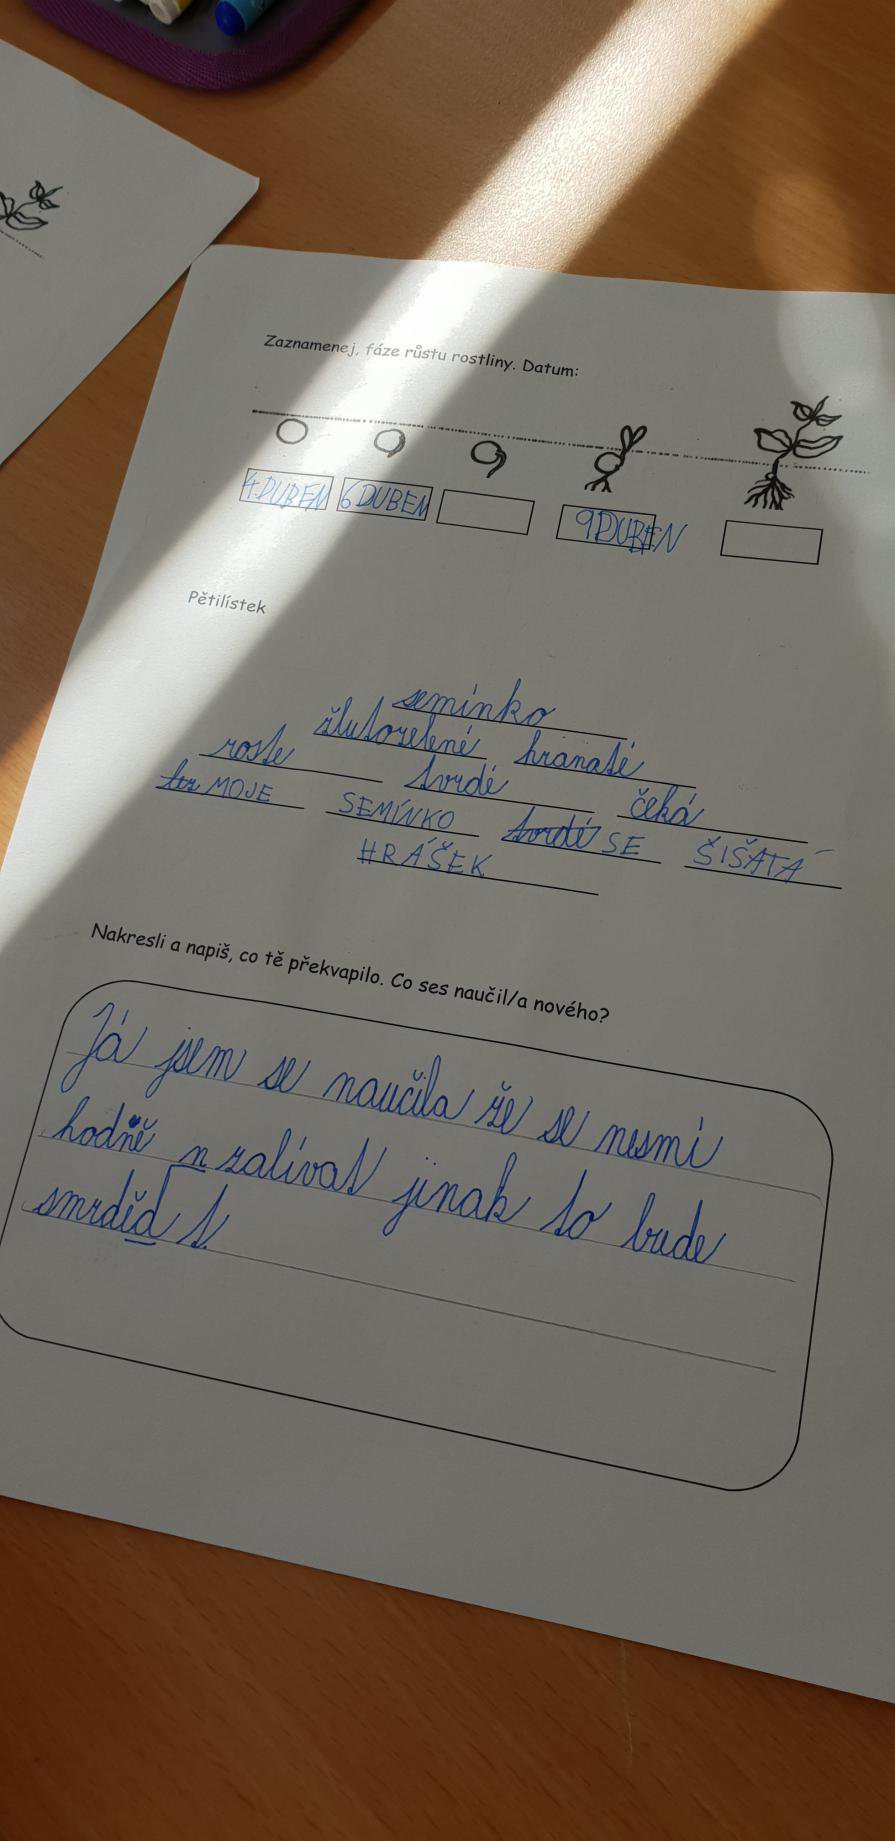 Zaznamenej, fáze růstu rostliny. Datum:
4DUBEN 6DUBEN 9DUBEN
Pětilístek
semínko
žlutozelené hranaté
roste tvrdé čeká
MOJE SEMÍNKO tvrdé SE ŠIŠATÁ
HRÁŠEK
Nakresli a napiš, co tě překvapilo. Co ses naučil/a nového?
Já jsem se naučila že se nesmí
hodně n zalívat jinak to bude
smrděd t.